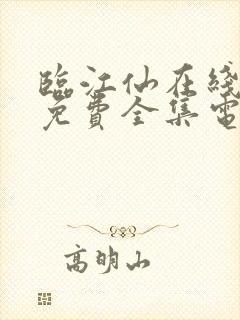 臨江仙在綫
免費全集電
高明山